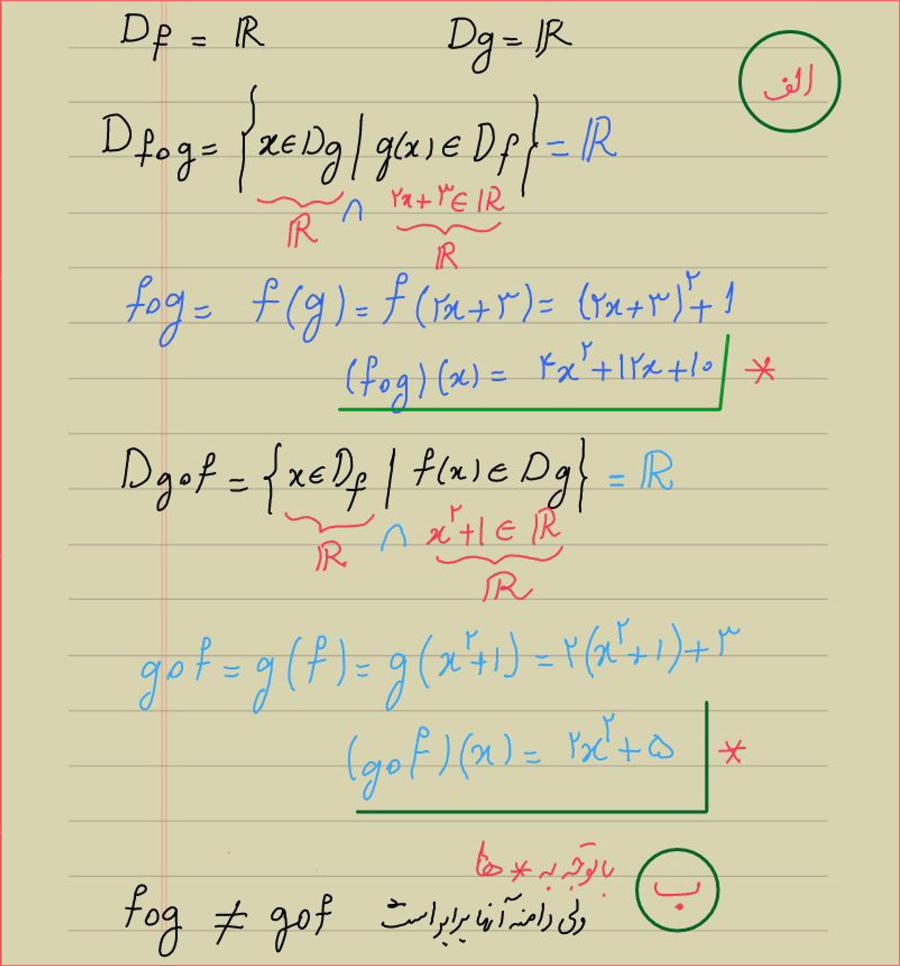 الف
D_f = ℝ    D_g = ℝ
D_fog = {x ∈ D_g | g(x) ∈ D_f} = ℝ
ℝ ∧ ۲x+۳ ∈ ℝ
ℝ
fog = f(g) = f(۲x+۳) = (۲x+۳)^۲ + ۱
(fog)(x) = ۴x^۲ + ۱۲x + ۱۰ *
D_gof = {x ∈ D_f | f(x) ∈ D_g} = ℝ
ℝ ∧ x^۲+۱ ∈ ℝ
ℝ
gof = g(f) = g(x^۲+۱) = ۲(x^۲+۱)+۳
(gof)(x) = ۲x^۲ + ۵ *
ب
با توجه به * ها
fog ≠ gof ولی دامنه آنها برابر است